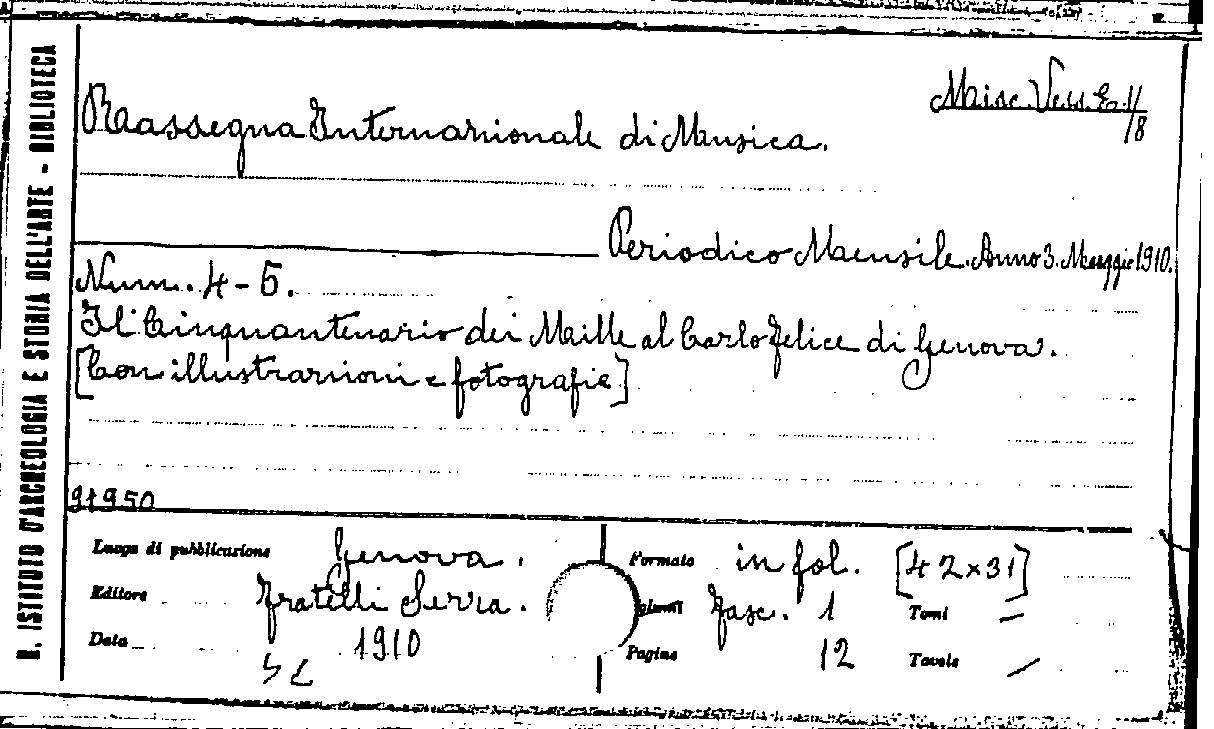 R. ISTITUTO D'ARCHEOLOGIA E STORIA DELL'ARTE - BIBLIOTECA
Misc. Vess. E. 1/
/8
Rassegna Internazionale di Musica.
Periodico Mensile. Anno 3. Maggio 1910.
Num. 4-5.
Il Cinquantenario dei Mille al Carlo Felice di Genova.
[Con illustrazioni e fotografie]
91950
Luogo di pubblicazione Genova. Formato in fol. [42x31]
Editore Fratelli Serra. fasc. 1 Tomi —
Data 1910 Pagine 12 Tavole —